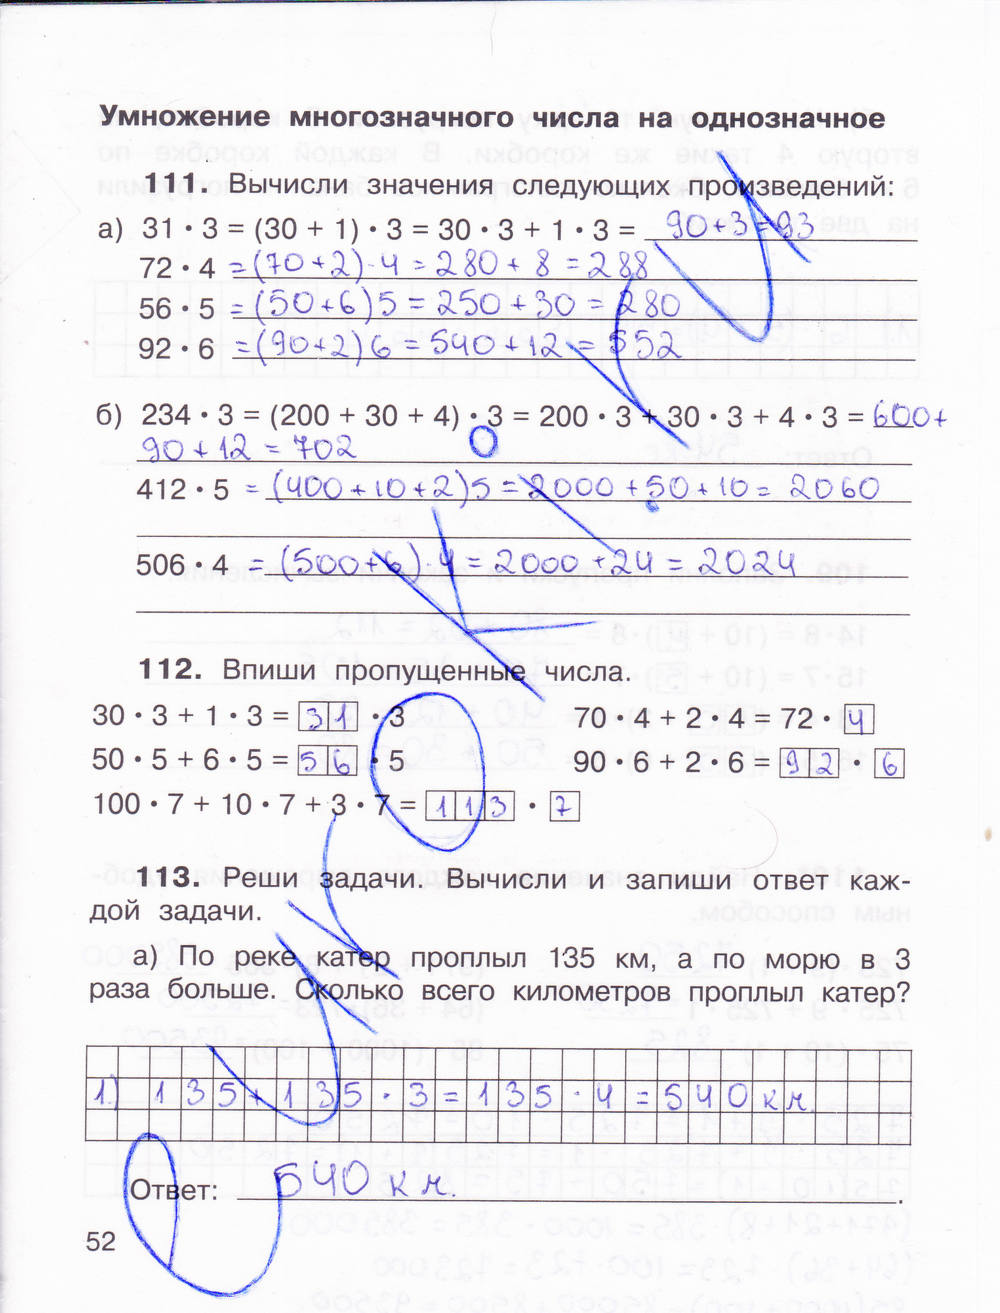 Умножение многозначного числа на однозначное
111. Вычисли значения следующих произведений:
а) 31 · 3 = (30 + 1) · 3 = 30 · 3 + 1 · 3 = 90+3=93
72 · 4 =(70+2)·4=280+8=288
56 · 5 =(50+6)5=250+30=280
92 · 6 =(90+2)6=540+12=552
б) 234 · 3 = (200 + 30 + 4) · 3 = 200 · 3 + 30 · 3 + 4 · 3 = 600+
90+12=702
412 · 5 =(400+10+2)5=2000+50+10=2060
506 · 4 =(500+6)·4=2000+24=2024
112. Впиши пропущенные числа.
30 · 3 + 1 · 3 = 31 · 3 70 · 4 + 2 · 4 = 72 · 4
50 · 5 + 6 · 5 = 56 · 5 90 · 6 + 2 · 6 = 92 · 6
100 · 7 + 10 · 7 + 3 · 7 = 113 · 7
113. Реши задачи. Вычисли и запиши ответ каж-
дой задачи.
а) По реке катер проплыл 135 км, а по морю в 3
раза больше. Сколько всего километров проплыл катер?
1.) 135+135·3=135·4=540 км
Ответ: 540 км.
52